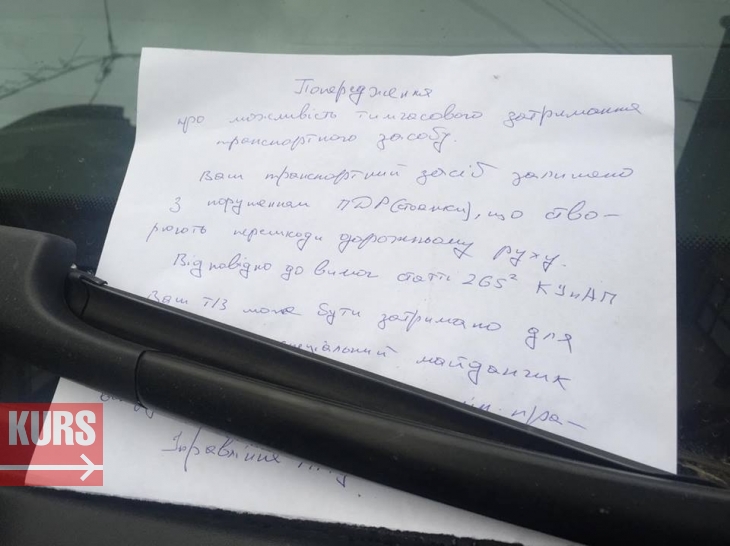 Попередження
про можливість тимчасового затримання
транспортного засобу.
Ваш транспортний засіб залишено
з порушенням ПДР(стоянки), що ство-
рюють перешкоди дорожньому руху.
Відповідно до вимог статті 265² КУпАП
Ваш Т/З може бути затримано для
майданчик
пра-
Управління
KURS